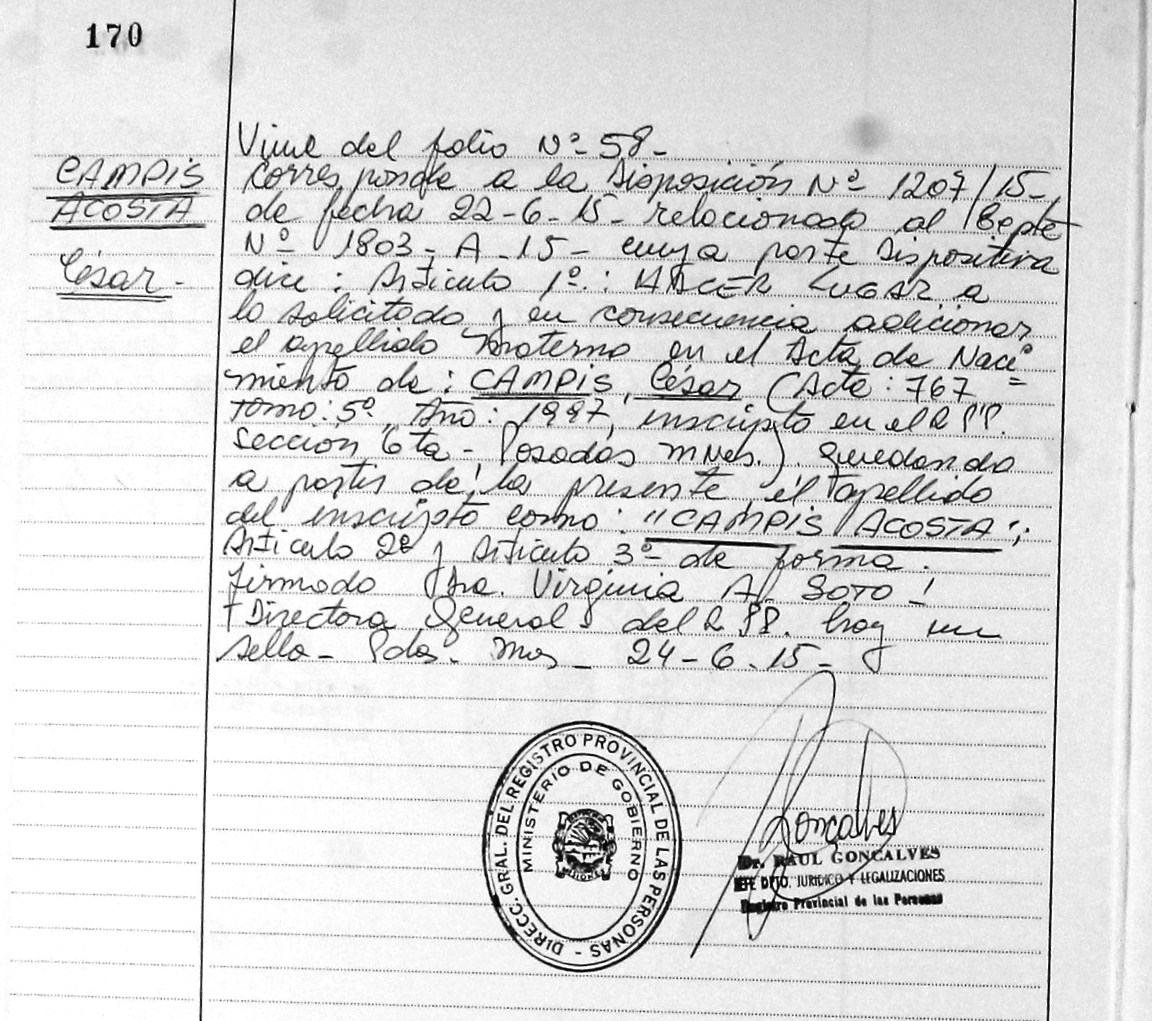 170
CAMPIS
ACOSTA
César -
Viene del folio Nº 58 -
Corresponde a la Disposición Nº 1207/15 -
de fecha 22-6-15 - relacionado al Expte
Nº 1803 - A - 15 - cuya parte dispositiva
dice: Artículo 1º: HACER LUGAR a
lo solicitado y en consecuencia adicionar
el apellido materno en el Acta de Naci
miento de: CAMPIS, César (Acta: 767 =
Tomo: 5º, Año: 1997, inscripto en el R.P.P.
Sección 6ta - Posadas Mnes.). Quedando
a partir de la presente el apellido
del inscripto como: "CAMPIS ACOSTA";
Artículo 2º y Artículo 3º de forma.
Firmado Dra. Virginia A. SOTO -
Directora General del R.P.P. hay un
sello - Pdas. Mnes - 24-6-15 -
DIRECC. GRAL. DEL REGISTRO PROVINCIAL DE LAS PERSONAS -
MINISTERIO DE GOBIERNO
MISIONES
Goncalves
Dr. RAUL GONCALVES
JEFE DPTO. JURIDICO Y LEGALIZACIONES
Registro Provincial de las Personas